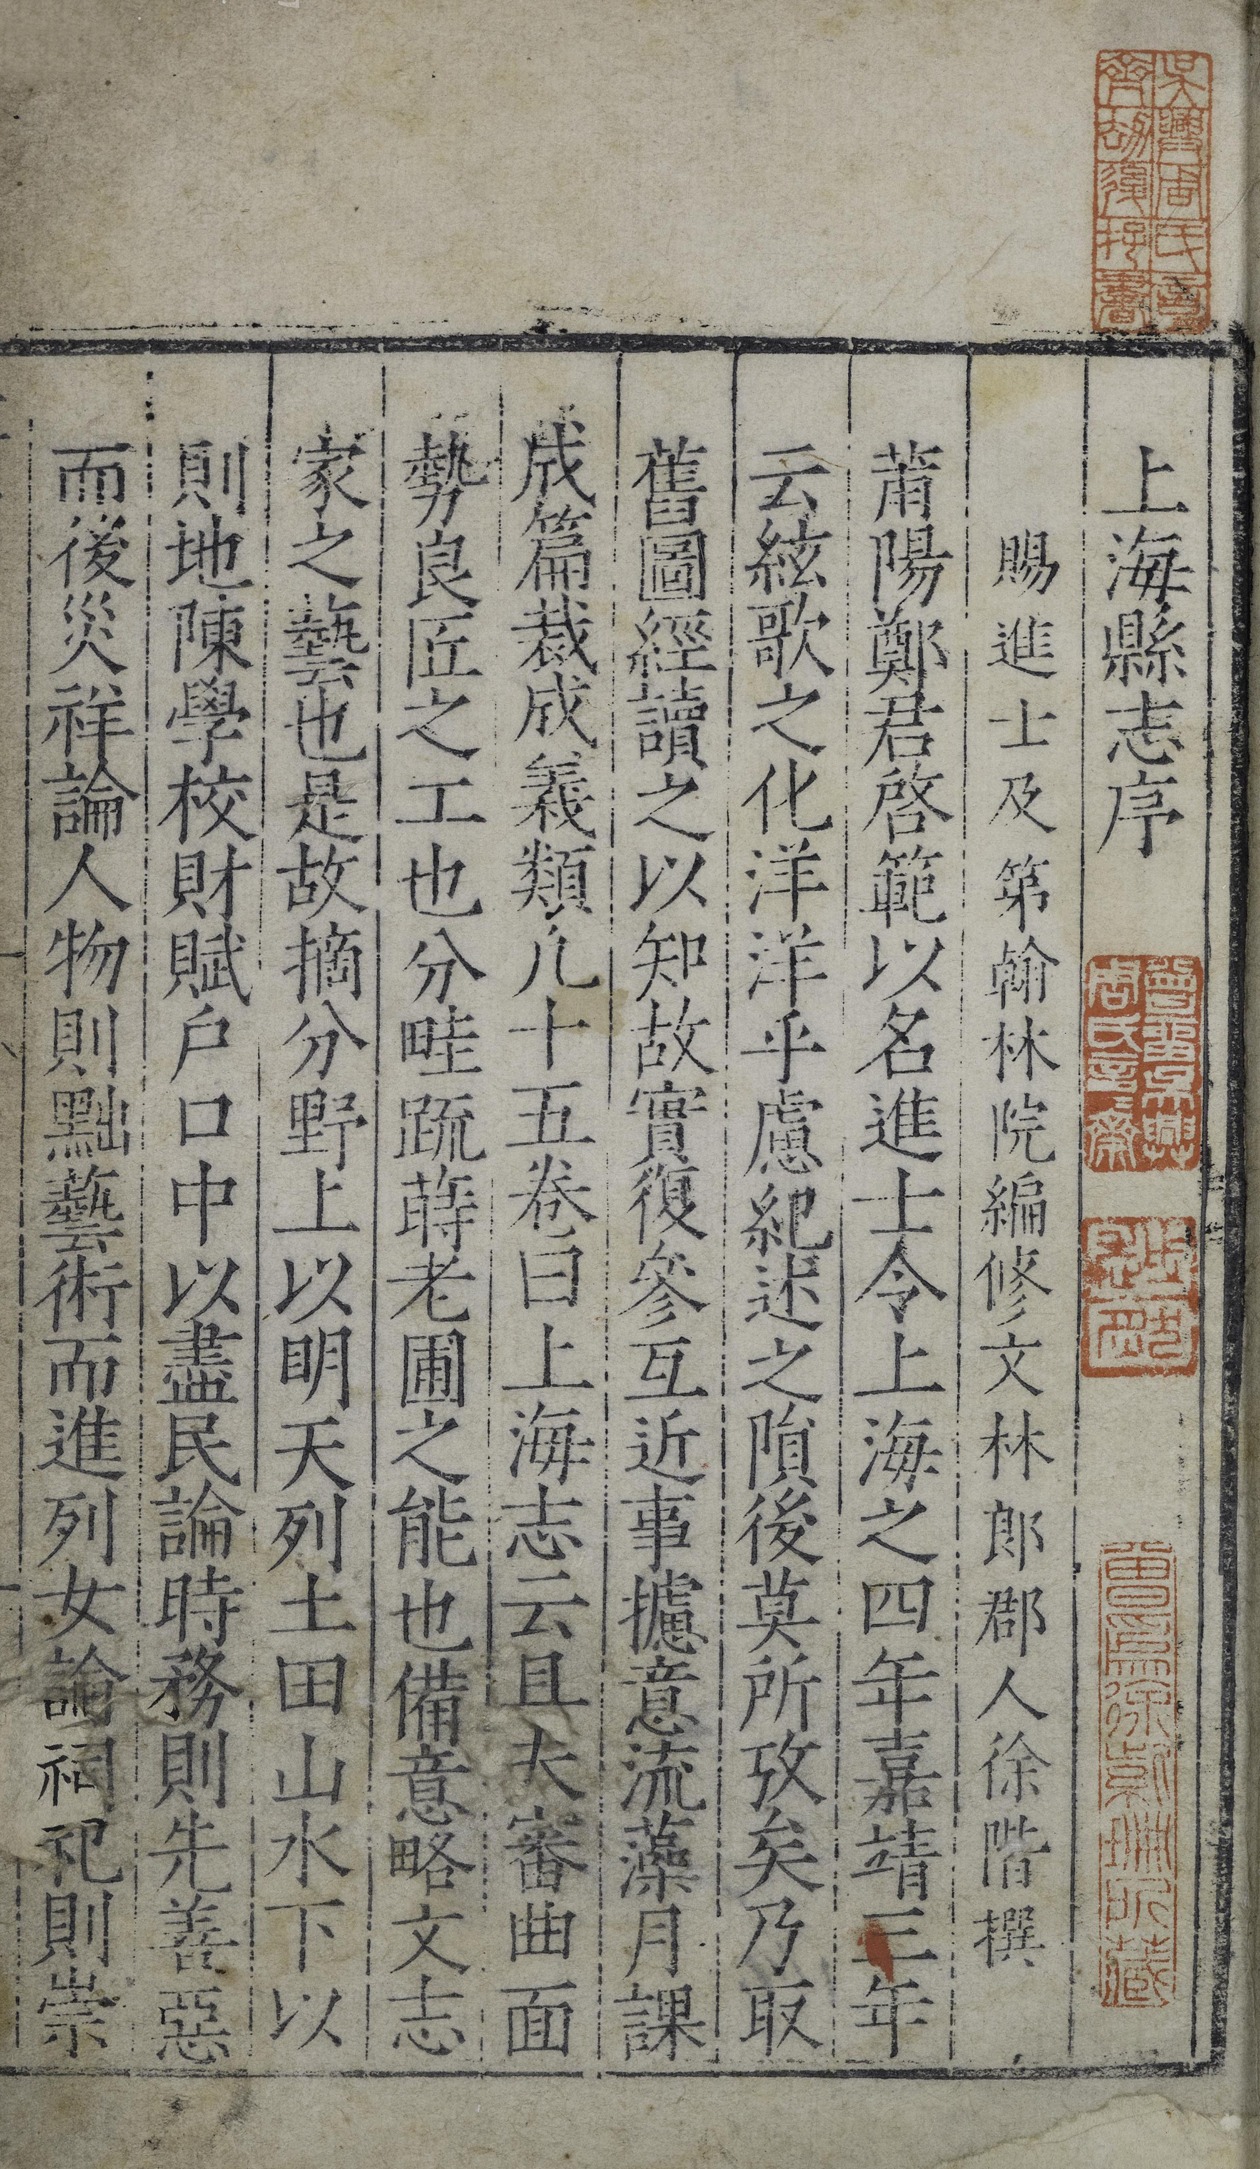 上海縣志序
賜進士及第翰林院編修文林郎郡人徐階撰
莆陽鄭君啓範以名進士令上海之四年嘉靖三年
云絃歌之化洋洋乎慮紀述之隕後莫所攷矣乃取
舊圖經讀之以知故實復參互近事攄意流藻月課
成篇裁成義類凡十五卷曰上海志云且夫審曲面
勢良匠之工也分畦疏蒔老圃之能也備意略文志
家之藝也是故摘分野上以明天列土田山水下以
則地陳學校財賦戶口中以盡民論時務則先善惡
而後災祥論人物則黜藝術而進列女論祠祀則崇
吳興周氏
劫後
曾留吳興周氏言言齋
曾爲徐紫珊所藏